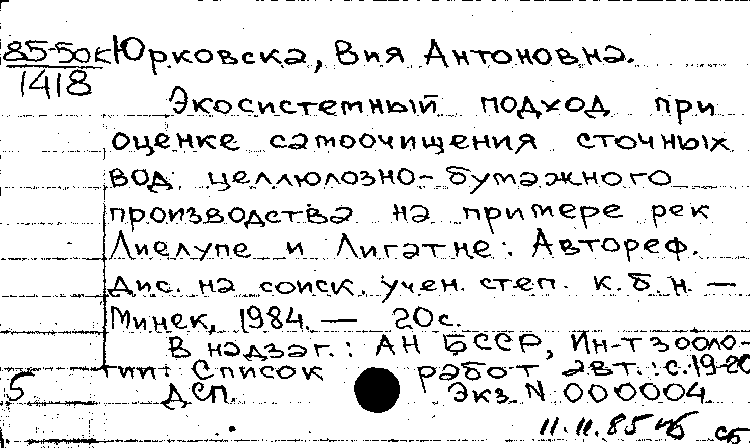 85-50к Юрковска, Вия Антоновна.
1418
Экосистемный подход при
оценке самоочищения сточных
вод целлюлозно-бумажного
производства на примере рек
Лиелупе и Лигатне: Автореф.
дис. на соиск. учен. степ. к.б.н. —
Минск, 1984. — 20с.
В надзаг.: АН БССР, Ин-т зооло-
гии. Список работ авт.: с.19-20
5 ДСП. Экз. N 000004
11.11.85 сб